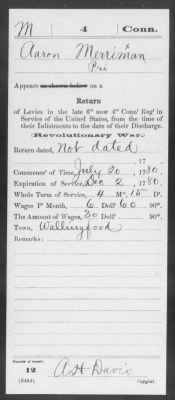 M 4 Conn.
Aaron Merriman
Pri
Appears as shown below on a
Return
of Levies in the late 6th now 4th Conn' Reg't in
Service of the United States, from the time of
their Inlistments to the date of their Discharge.
(Revolutionary War.)
Return dated, Not dated
17
Commence' of Time, July 20, 1780.
Expiration of Service, Dec 2, 1780.
Whole Term of Service, 4 Ms, 15 Ds.
Wages P Month, 6 Dolls 60 90ths.
The Amount of Wages, 30 Dolls 90ths.
Town, Wallingford
Remarks:
Number of record:
12
A H Davis
Copyist.